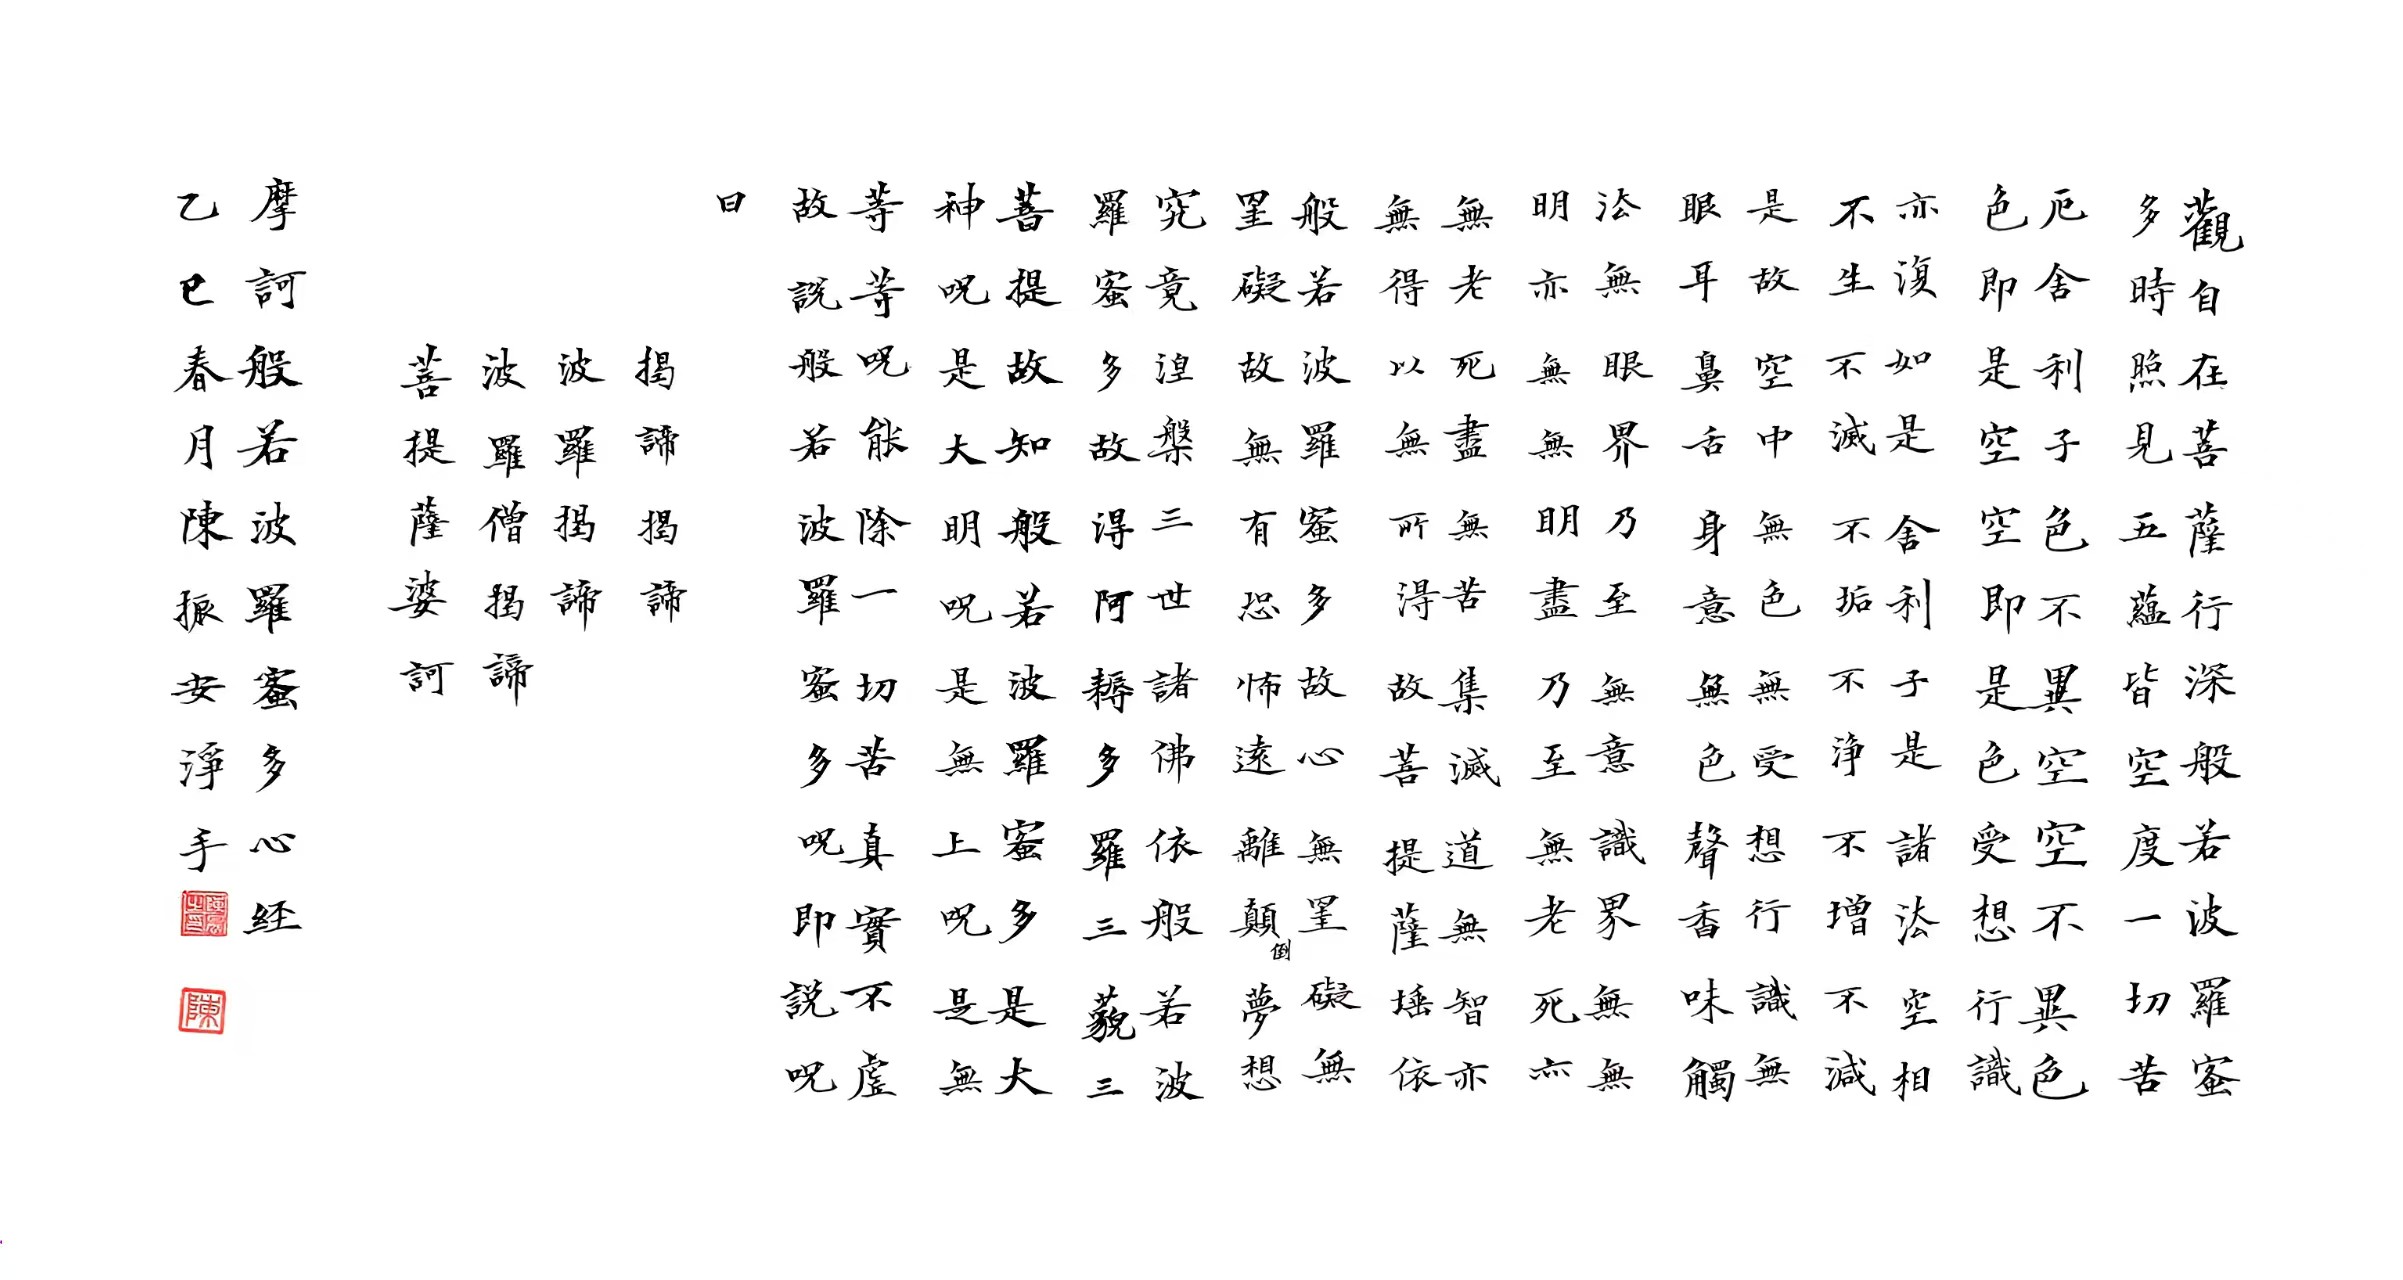 觀自在菩薩行深般若波羅蜜
多時照見五蘊皆空度一切苦
厄舍利子色不異空空不異色
色即是空空即是色受想行識
亦復如是舍利子是諸法空相
不生不滅不垢不淨不增不減
是故空中無色無受想行識無
眼耳鼻舌身意無色聲香味觸
法無眼界乃至無意識界無無
明亦無無明盡乃至無老死亦
無老死盡無苦集滅道無智亦
無得以無所得故菩提薩埵依
般若波羅蜜多故心無罣礙無
罣礙故無有恐怖遠離顛倒夢想
究竟涅槃三世諸佛依般若波
羅蜜多故得阿耨多羅三藐三
菩提故知般若波羅蜜多是大
神呪是大明呪是無上呪是無
等等呪能除一切苦真實不虛
故説般若波羅蜜多呪即説呪
曰
揭諦揭諦
波羅揭諦
波羅僧揭諦
菩提薩婆訶
摩訶般若波羅蜜多心経
乙巳春月陳振安淨手
陳